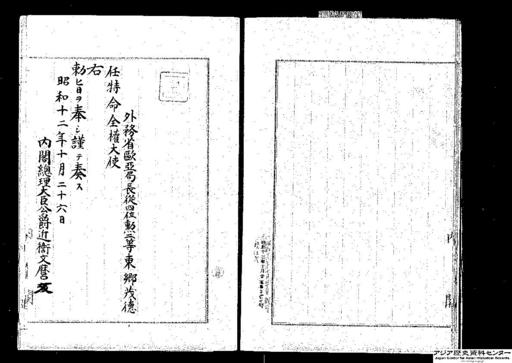 外務省歐亞局長從四位勳三等東郷茂德
任特命全權大使
右
勅旨ヲ奉シ謹テ奏ス
昭和十二年十月二十六日
內閣總理大臣公爵近衞文麿
內閣
アジア歴史資料センター
Japan Center for Asian Historical Records